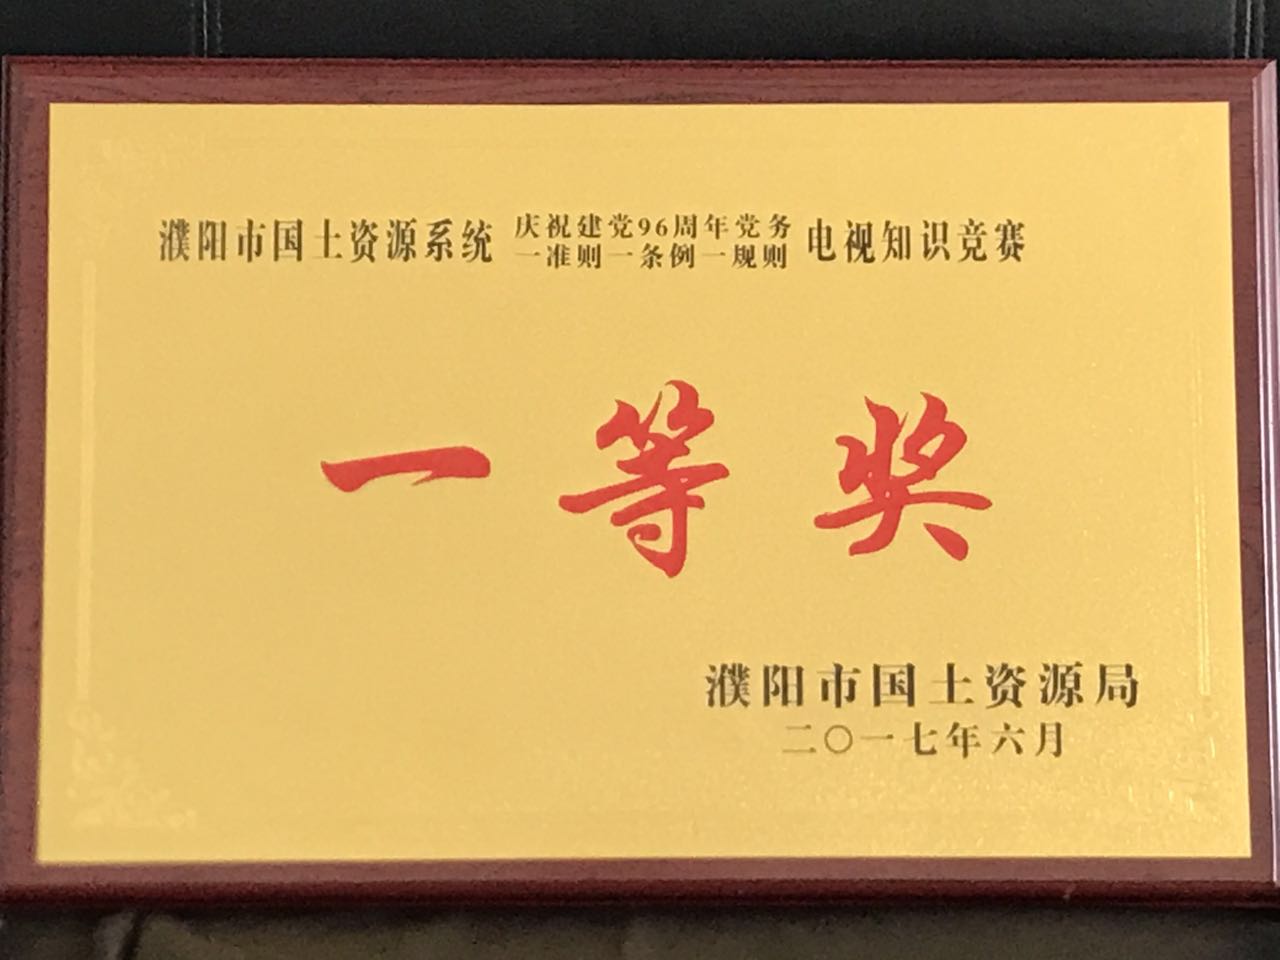 濮阳市国土资源系统 庆祝建党96周年党务 电视知识竞赛
一准则一条例一规则
一等奖
濮阳市国土资源局
二〇一七年六月